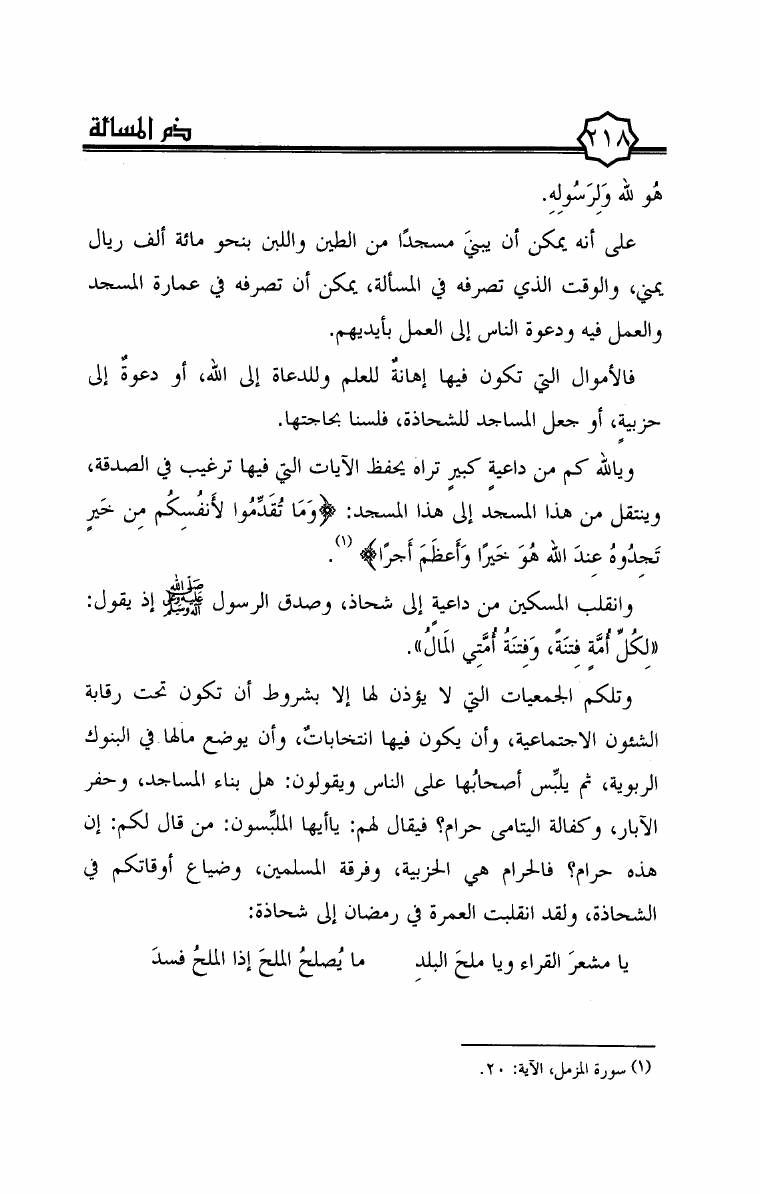 ذم المسألة
٢١٨
هُو لله وَلِرَسُولِهِ.
على أنه يمكن أن يبنيَ مسجدًا من الطين واللبن بنحو مائة ألف ريال
يمني، والوقت الذي تصرفه في المسألة، يمكن أن تصرفه في عمارة المسجد
والعمل فيه ودعوة الناس إلى العمل بأيديهم.
فالأموال التي تكون فيها إهانةٌ للعلم وللدعاة إلى الله، أو دعوةٌ إلى
حزبيةٍ، أو جعل المساجد للشحاذة، فلسنا بحاجتها.
ويالله كم من داعيةٍ كبيرٍ تراه يحفظ الآيات التي فيها ترغيب في الصدقة،
وينتقل من هذا المسجد إلى هذا المسجد: ﴿وَمَا تُقَدِّمُوا لأَنفُسِكُم مِن خَيرٍ
تَجِدُوهُ عِندَ الله هُوَ خَيرًا وَأَعظَمَ أَجرًا﴾ (١).
وانقلب المسكين من داعيةٍ إلى شحاذ، وصدق الرسول ﷺ إذ يقول:
«لِكُلِّ أُمَّةٍ فِتنَةً، وَفِتنَةُ أُمَّتِي المَالُ».
وتلكم الجمعيات التي لا يؤذن لها إلا بشروط أن تكون تحت رقابة
الشئون الاجتماعية، وأن يكون فيها انتخاباتٌ، وأن يوضع مالها في البنوك
الربوية، ثم يلبِّس أصحابُها على الناس ويقولون: هل بناء المساجد، وحفر
الآبار، وكفالة اليتامى حرام؟ فيقال لهم: ياأيها الملبِّسون: من قال لكم: إن
هذه حرام؟ فالحرام هي الحزبية، وفرقة المسلمين، وضياع أوقاتكم في
الشحاذة، ولقد انقلبت العمرة في رمضان إلى شحاذة:
يا مشعرَ القراء ويا ملحَ البلدِ ما يُصلحُ الملحَ إذا الملحُ فسدَ
(١) سورة المزمل، الآية: ٢٠.